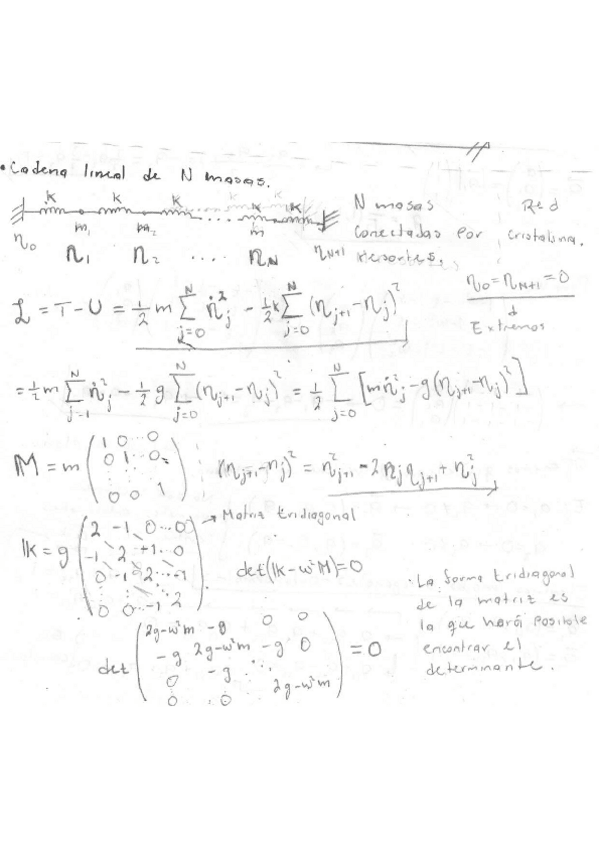 • Cadena lineal de N masas.
k k k k k k
m₁ m₂ m
η₀ η₁ η₂ .... η_N η_{N+1}
N masas
conectadas por
resortes.
Red
cristalina.
η₀ = η_{N+1} = 0
Extremos
L = T - U = ½ m Σ_{j=0}^{N} η̇_j² - ½ k Σ_{j=0}^{N} (η_{j+1} - η_j)²
= ½ m Σ_{j=1}^{N} η̇_j² - ½ g Σ_{j=0}^{N} (η_{j+1} - η_j)² = ½ Σ_{j=0}^{N} [m η̇_j² - g(η_{j+1} - η_j)²]
M = m ( 1 0 ... 0
0 1 ... 0
0 0 1 )
(η_{j+1} - η_j)² = η²_{j+1} - 2 η_j η_{j+1} + η_j²
→ Matriz tridiagonal
K = g ( 2 -1 0 ... 0
-1 2 +1 ... 0
0 -1 2 ... -1
0 0 ... -1 2 )
det(K - ω²M) = 0
det ( 2g-ω²m -g 0 0
-g 2g-ω²m -g 0
0 -g ⋱
0 0 2g-ω²m ) = 0
· La forma tridiagonal
de la matriz es
la que hará posible
encontrar el
determinante.